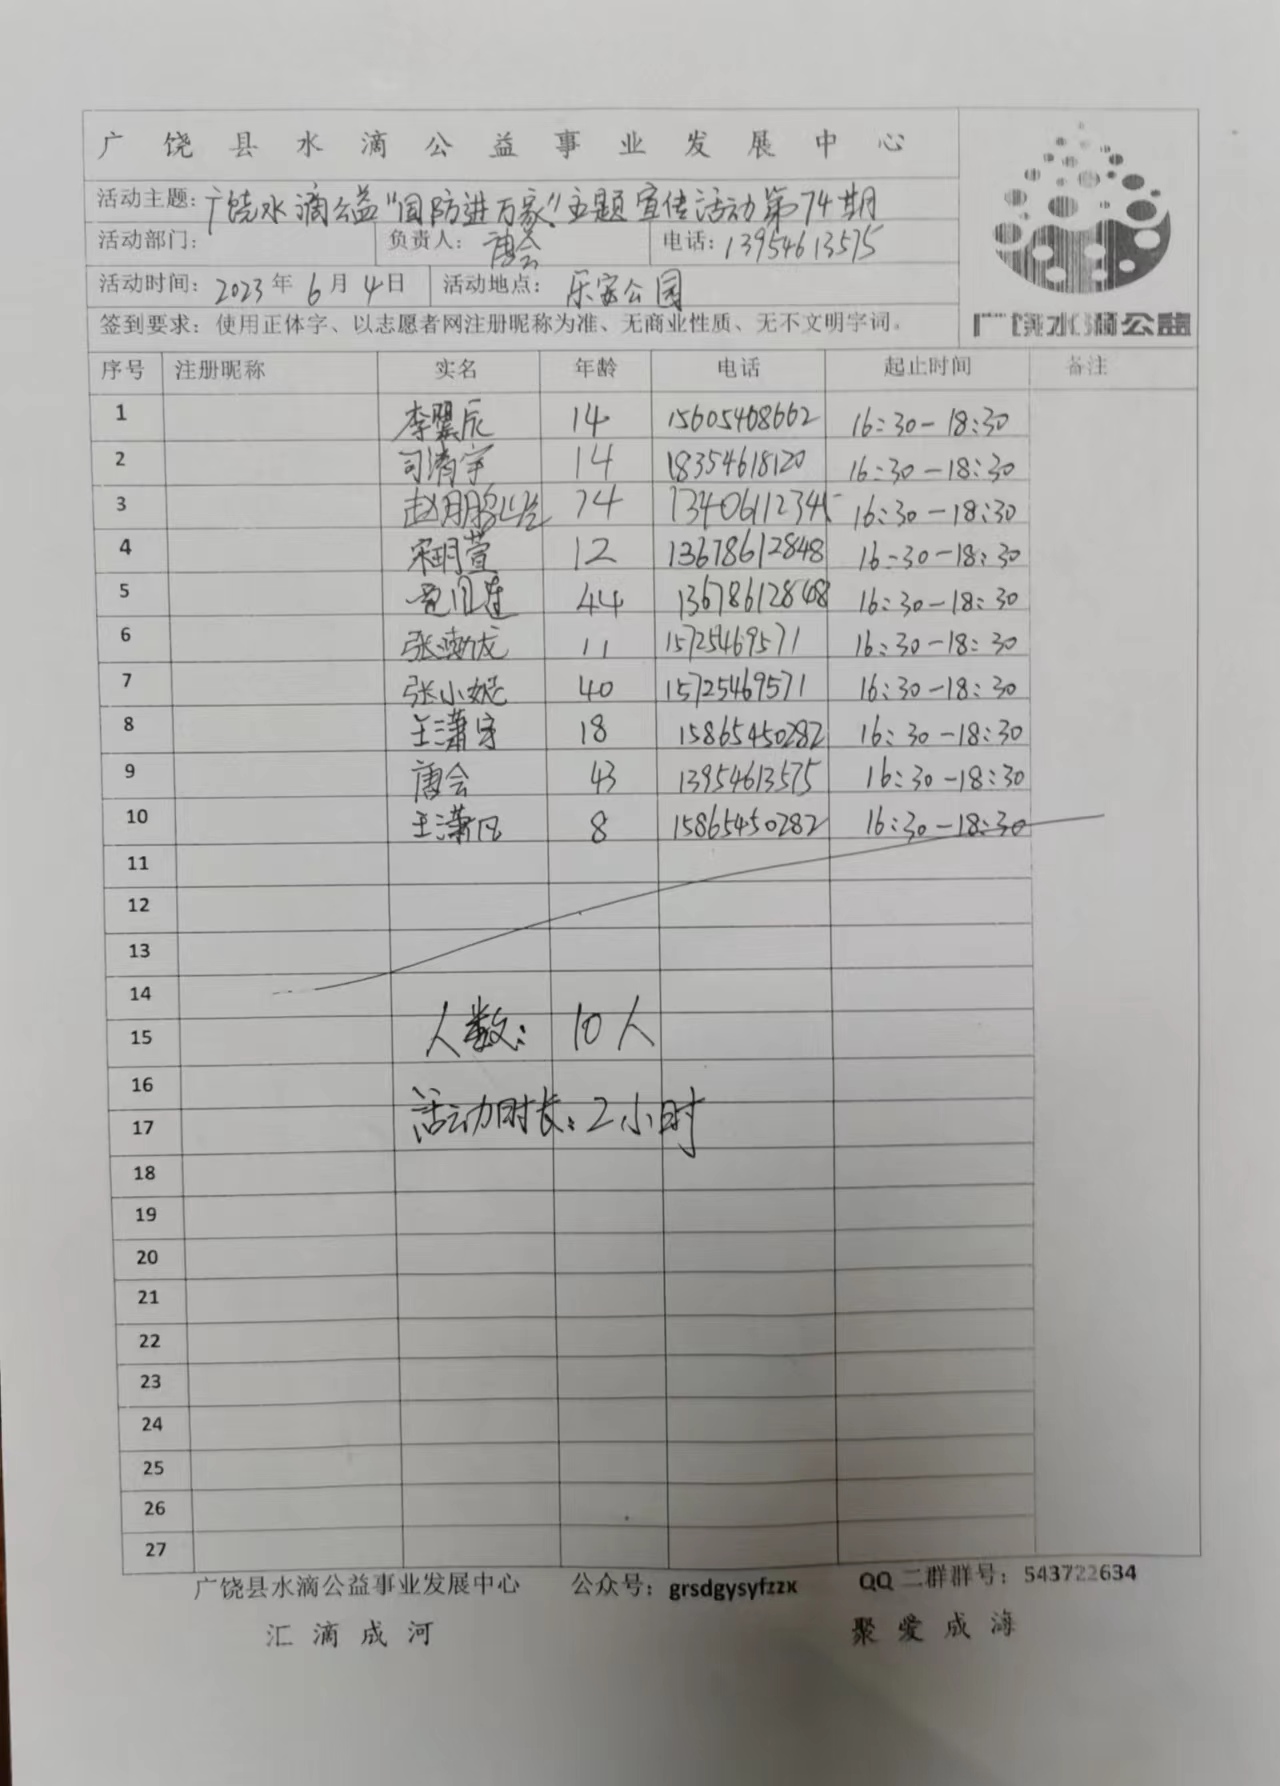 广饶县水滴公益事业发展中心
活动主题：广饶水滴公益"国防进万家"主题宣传活动第74期
活动部门： 负责人：唐会 电话：13954613575
活动时间：2023年6月4日 活动地点：乐安公园
签到要求：使用正体字、以志愿者网注册昵称为准、无商业性质、无不文明字词。
广饶水滴公益
序号 注册昵称 实名 年龄 电话 起止时间 备注
1 李翼辰 14 15605468662 16:30-18:30
2 司清宇 14 18354618120 16:30-18:30
3 赵 14 13406112345 16:30-18:30
4 宋玥萱 12 13678612848 16:30-18:30
5 44 13678612848 16:30-18:30
6 张 龙 11 15725469571 16:30-18:30
7 张小妮 40 15725469571 16:30-18:30
8 王潇宇 18 15865450282 16:30-18:30
9 唐会 43 13954613575 16:30-18:30
10 王潇凡 8 15865450282 16:30-18:30
11
12
13
14
15 人数：10人
16
17 活动时长：2小时
18
19
20
21
22
23
24
25
26
27
广饶县水滴公益事业发展中心 公众号：grsdgysyfzzx QQ二群群号：543722634
汇滴成河 聚爱成海